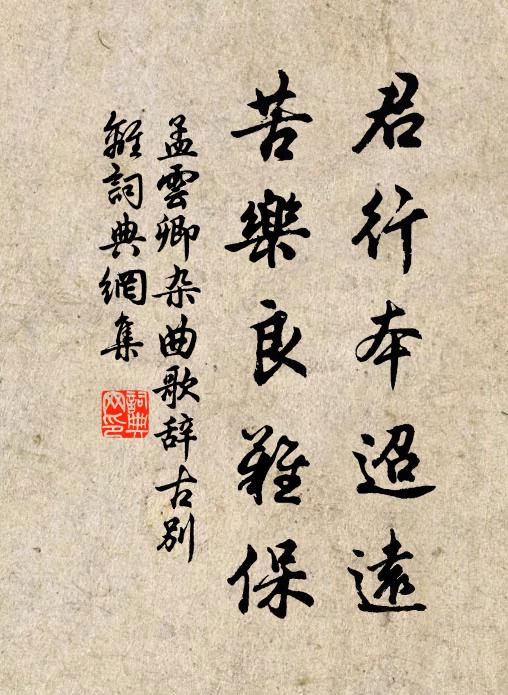 君行本迢遠
苦樂良難保
孟雲卿杂曲歌辞古别
離詞典網集
詞典
网印